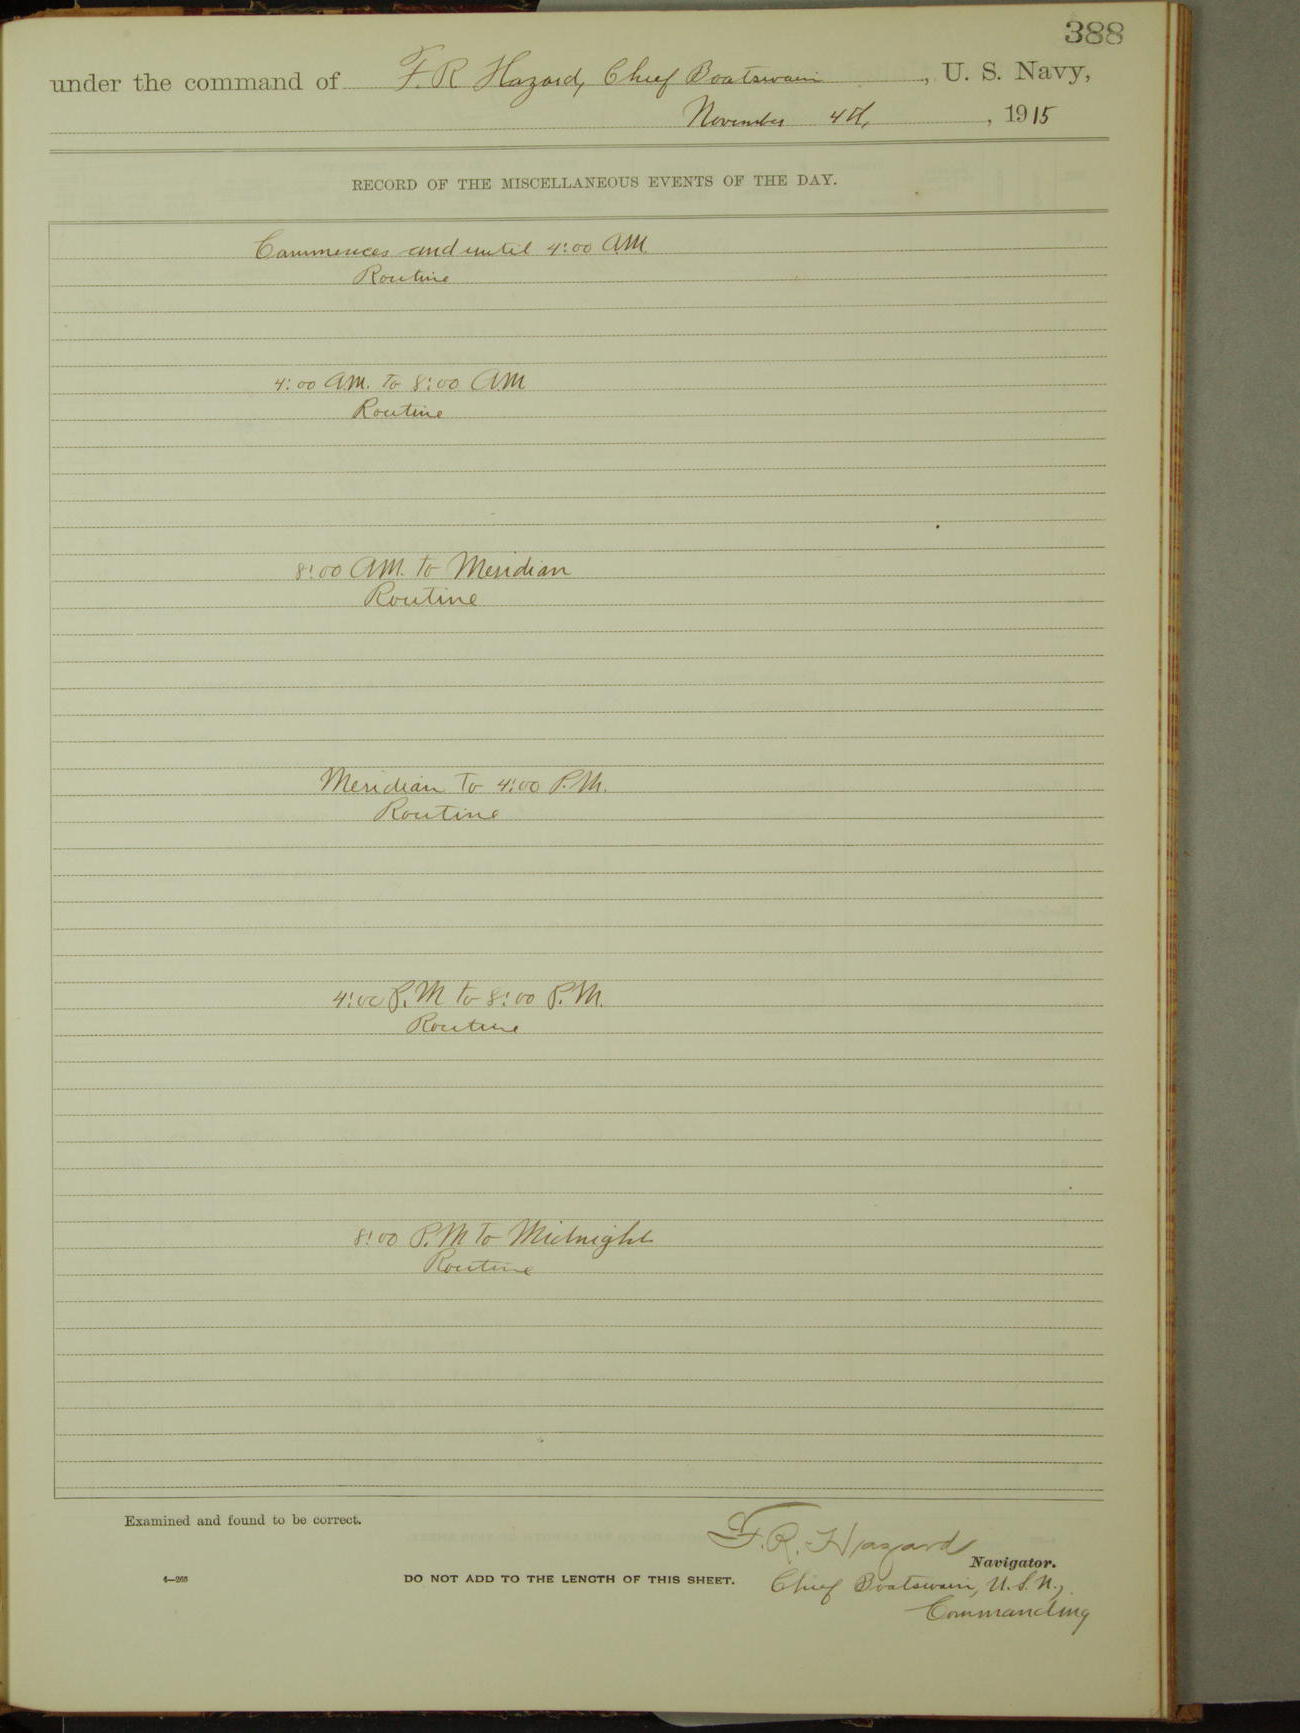 388
under the command of F. R Hazard, Chief Boatswain , U. S. Navy,
November 4th, , 1915
RECORD OF THE MISCELLANEOUS EVENTS OF THE DAY.
Commences and until 4:00 AM.
Routine
4:00 AM. to 8:00 AM
Routine
8:00 AM. to Meridian
Routine
Meridian to 4:00 P.M.
Routine
4:00 P.M to 8:00 P.M.
Routine
8:00 P.M to Midnight
Routine
Examined and found to be correct.
F. R. Hazard
Navigator.
4—268 DO NOT ADD TO THE LENGTH OF THIS SHEET. Chief Boatswain, U.S.N.,
Commanding